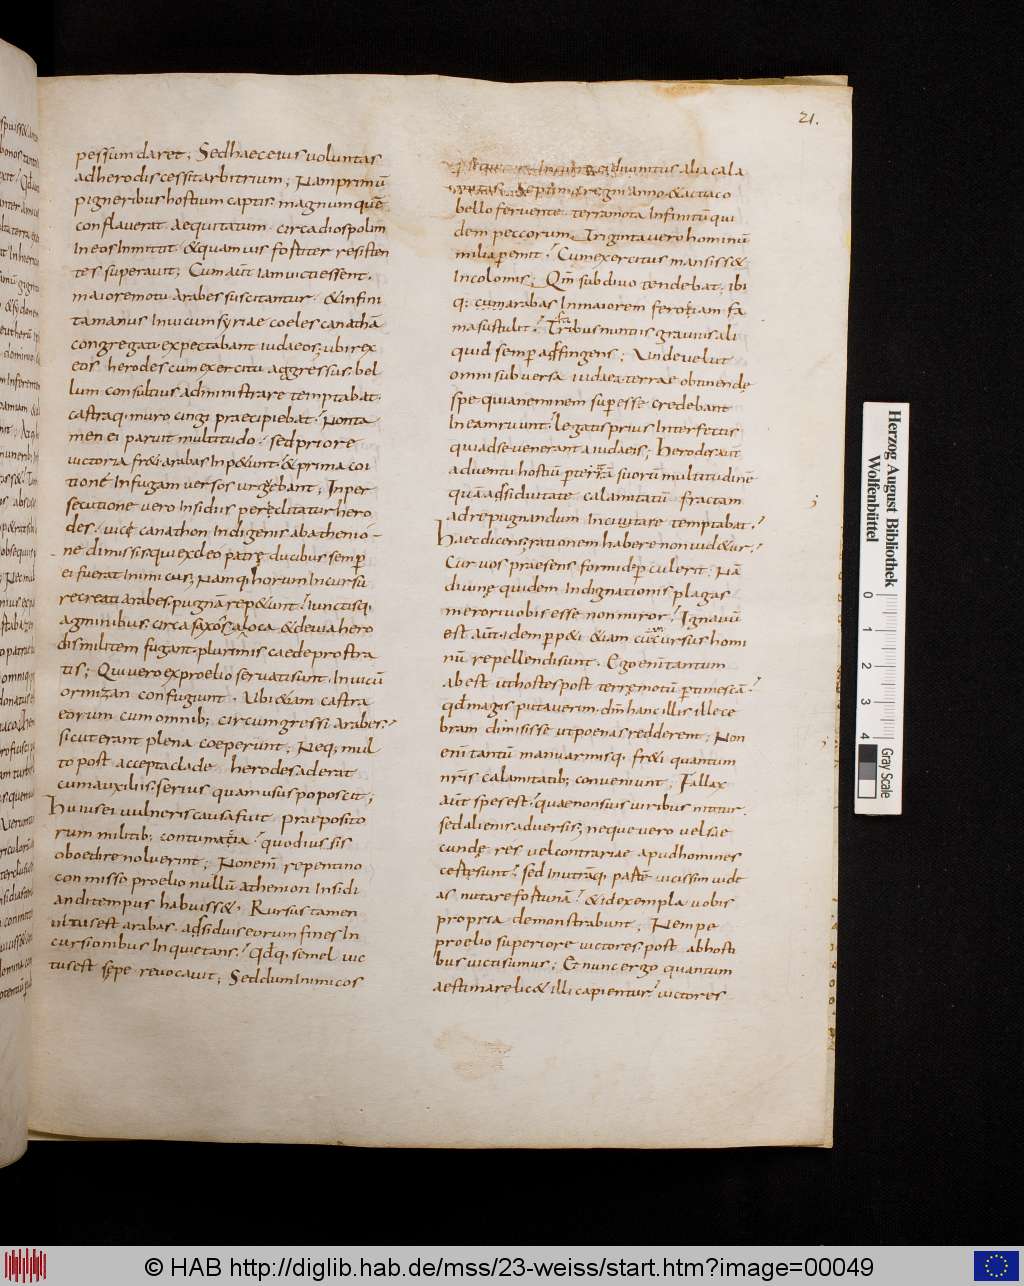 21.
pessum daret; Sed haec eius voluntas
ad herodis cessit arbitrium; Nam primū
pigneribus hostium captis magnumque
conflaverat aequitatum circa diospolim
In eos Inmittit &quamuis fortiter resisten
tes superavit; Cum aūt Iam victi essent.
maiore motu Arabes suscitantur. &infini
ta manus In vicum syriae coeles canathā
congregati expectabant iudaeos; ubi rex
eos herodes cum exercitu aggressus bel
lum consultius administrare temptabat.
castraq; muro cingi praecipiebat; Non ta
men ei paruit multitudo; sed priore
victoria fr&i arabas Inp&unt; &prima coi
tione In fugam versos urgebant; In per
secutione vero Insidiis pereclitatur hero
des. vice canathon Indigenis ab athenio
ne dimissis qui ex deo patrę ducibus semp
ei fuerat Inimicus; Namq; horum Incursu
recreati arabes pugnā rep&unt; iunctisq;
agminibus circa saxosa loca &devia hero
dis militem fugant. plurimis caede prostra
tis; Qui vero ex proelio servati sunt. In vicū
ormizan confugiunt. Ubi &iam castra
eorum cum omnib; circumgressi Arabes;
sicut erant plena coeperunt; Neq; mul
to post accepta clade herodes aderat
cum auxiliis serius quam usus poposcit;
Huius ei vulneris causa fuit praeposito
rum militib; contumatia quod iussis
oboedire noluerint; Non enī repentino
con misso proelio nullū athenion Insidi
andi tempus habuiss&. Rursus tamen
ultus est arabas. adsidvis eorum fines In
cursionibus Inquietans; Qđq; semel vic
tus est sępe revocavit; Sed dum Inimicos
divinitus alia cala
septimo regni anno &actiaco
bello fervente. terra mota Infinitū qui
dem peccorum. Triginta vero hominū
milia peremit; Cum exercitus mansiss&
Incolomis; Qm̄ subdivo tendebat. ibi
q; cum arabas In maiorem ferotiam fa
ma sustulit; Tristibus nuntiis gravius ali
quid semp adfingens; Unde velut
omni subversa iudaea terrae obtinendę
spe. quia neminem sup esse credebant
In eam ruunt; legatis prius Interfectis
qui ad se venerant a iudaeis; Herodes aut
adventu hostiū p territā suorū multitudinē
quā adsiduitate calamitatū fractam
ad repugnandum Incitare temptabat;
Haec dicens; rationem habere non vid&ur;
Cur vos praesens formido p culerit; Nā
divinę quidem Indignationis plagas
merori vobis esse non miror; Ignavū
est aūt. idem pp&i &iam cū Incursus homi
nū repellendi sunt. Ego enī tantum
abest ut hostes post terręmotū p timescā;
qđ magis putaverim dm̄ hanc illis Illece
bram dimisisse ut poenas redderent; Non
enī tantū manu armisq; fr&i quantum
nr̄is calamitatib; conveniunt; Fallax
aūt spes est; quae non suis viribus nititur.
sed alienis adversis; neque vero vel se
cundę res vel contrariae apud homines
certę sunt; sed In utrāq; partē vicissim vide
as nutare fortunā; &id exempla vobis
propria demonstrabunt; Nempe
proelio superiore victores post ab hosti
bus victi sumus; Et nunc ergo quantum
aestimare lic& illi capientur; victores
Herzog August Bibliothek
Wolfenbüttel
0 1 2 3 4
Gray Scale
© HAB http://diglib.hab.de/mss/23-weiss/start.htm?image=00049